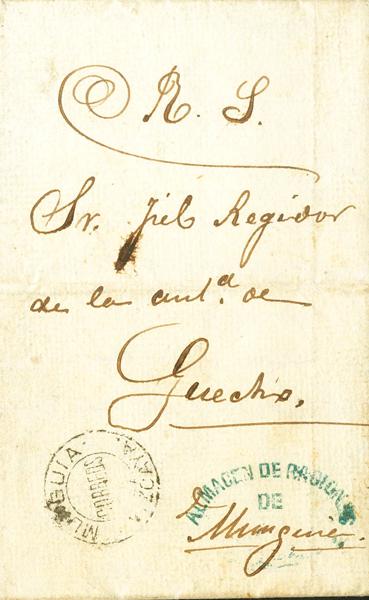 R. S.
Sr. Fiel Regidor
de la ant.d de
Guecho,
MUNGUIA.
CORREOS
VIZCAYA.
ALMACEN DE RACIONES
DE
Munguia.